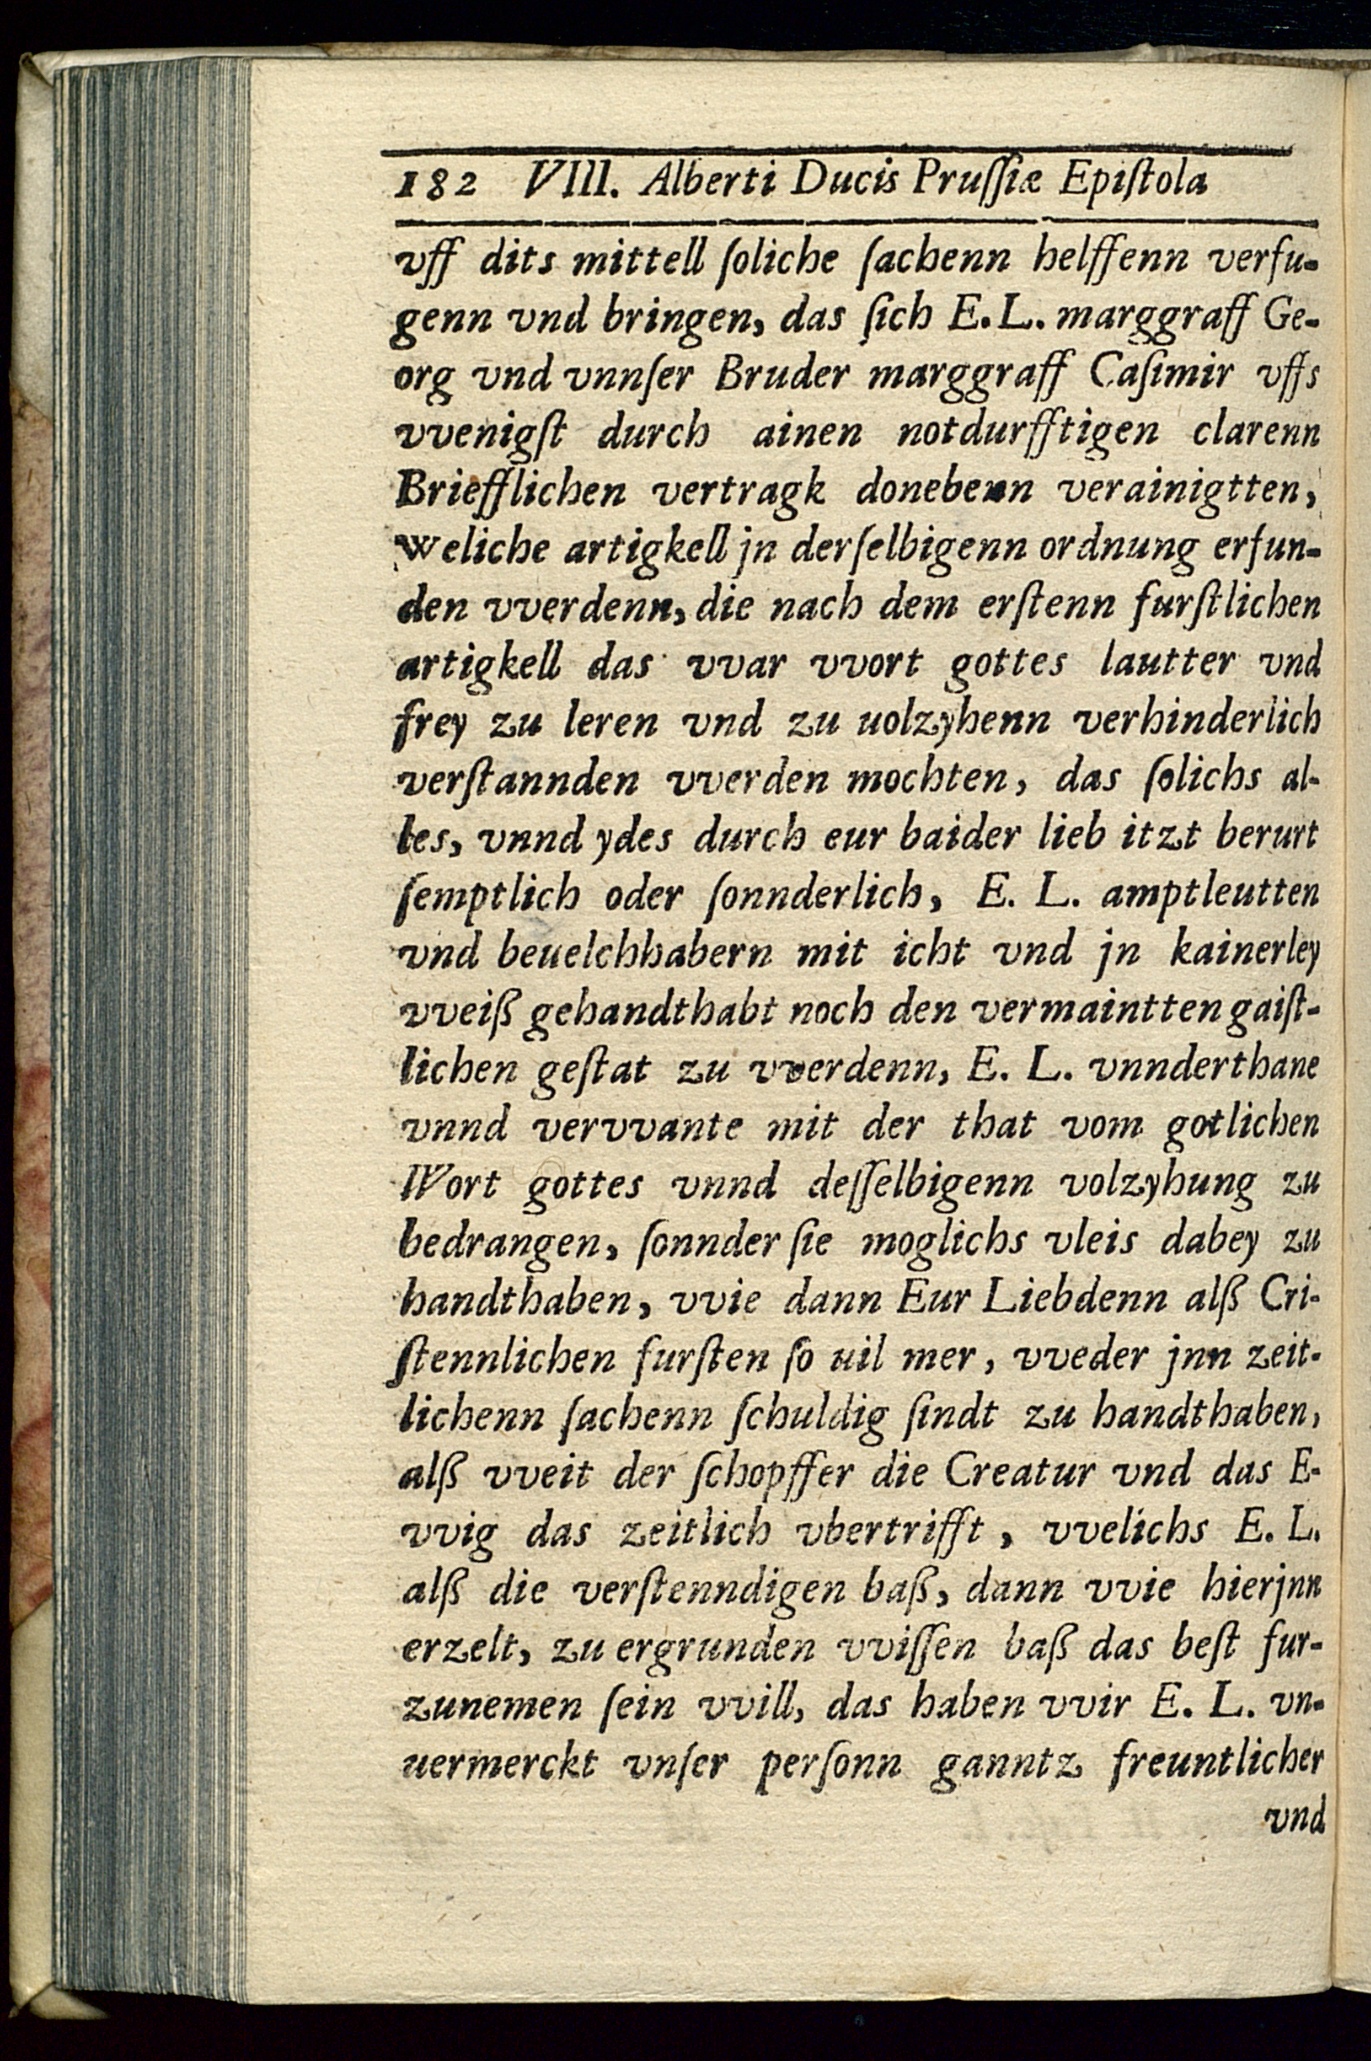 182 VIII. Alberti Ducis Pruſſiæ Epiſtola
vff dits mittell ſoliche ſachenn helffenn verfu-
genn vnd bringen, das ſich E. L. marggraff Ge-
org vnd vnnſer Bruder marggraff Caſimir vffs
vvenigſt durch ainen notdurfftigen clarenn
Briefflichen vertragk donebenn verainigtten,
weliche artigkell jn derſelbigenn ordnung erfun-
den vverdenn, die nach dem erſtenn furſtlichen
artigkell das vvar vvort gottes lautter vnd
frey zu leren vnd zu uolzyhenn verhinderlich
verſtannden vverden mochten, das ſolichs al-
les, vnnd ydes durch eur baider lieb itzt berurt
ſemptlich oder ſonnderlich, E. L. amptleutten
vnd beuelchhabern mit icht vnd jn kainerley
vveiß gehandthabt noch den vermaintten gaiſt-
lichen geſtat zu vverdenn, E. L. vnnderthane
vnnd vervvante mit der that vom gotlichen
Wort gottes vnnd deſſelbigenn volzyhung zu
bedrangen, ſonnder ſie moglichs vleis dabey zu
handthaben, vvie dann Eur Liebdenn alß Cri-
ſtennlichen furſten ſo uil mer, vveder jnn zeit-
lichenn ſachenn ſchuldig ſindt zu handthaben,
alß vveit der ſchopffer die Creatur vnd das E-
vvig das zeitlich vbertrifft, vvelichs E. L.
alß die verſtenndigen baß, dann vvie hierjnn
erzelt, zu ergrunden vviſſen baß das beſt fur-
zunemen ſein vvill, das haben vvir E. L. vn-
uermerckt vnſer perſonn ganntz freuntlicher
vnd